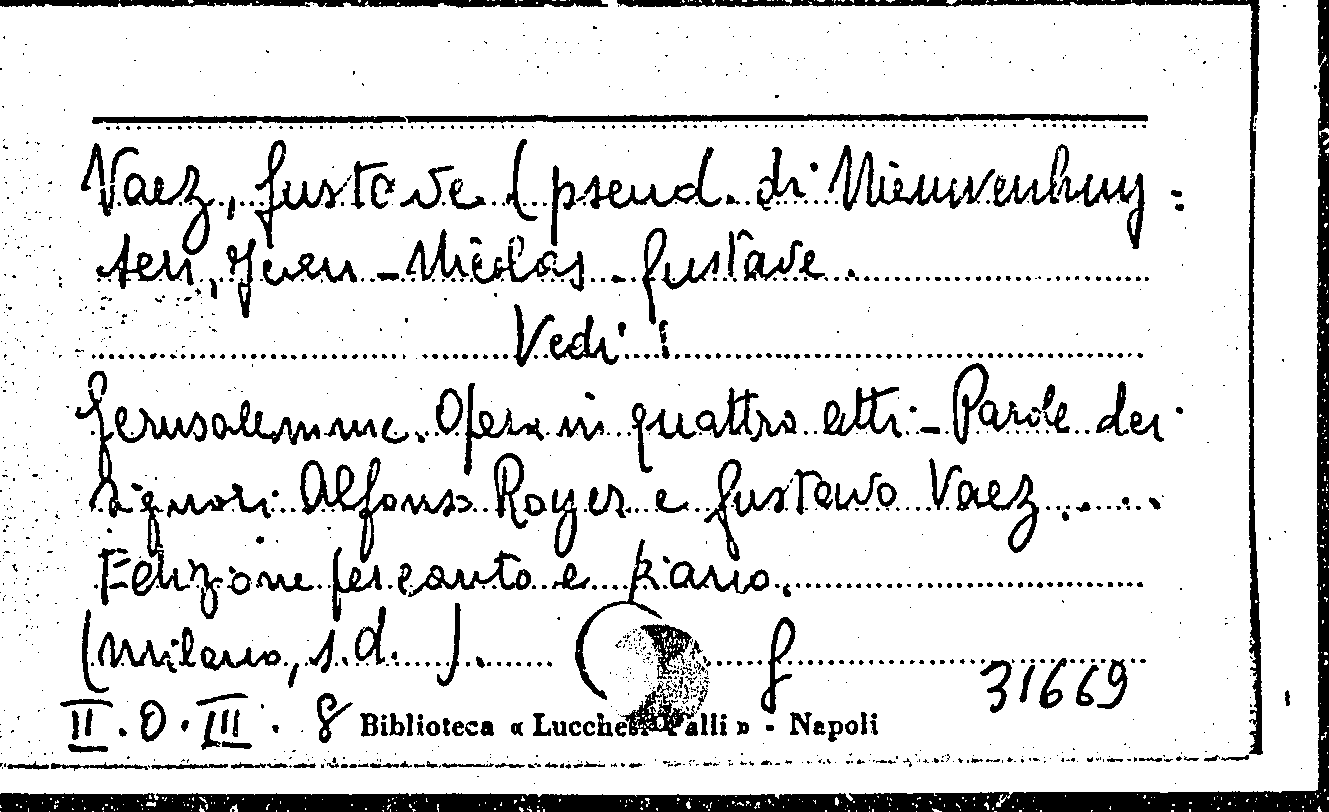 Vaez, Gustave (pseud. di Nieuwenhuy=
sen, Jean-Nicolas-Gustave.
Vedi:
Gerusalemme. Opera in quattro atti - Parole dei
Signori Alfonso Royer e Gustavo Vaez....
Edizione per canto e piano.
(Milano, s.d. ). G 31669
II. O. III. 8 Biblioteca « Lucchesi Palli » - Napoli